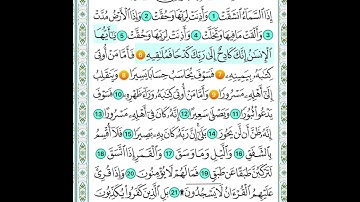 إِذَا ٱلسَّمَآءُ ٱنشَقَّتْ 1 وَأَذِنَتْ لِرَبِّهَا وَحُقَّتْ 2 وَإِذَا ٱلْأَرْضُ مُدَّتْ
3 وَأَلْقَتْ مَا فِيهَا وَتَخَلَّتْ 4 وَأَذِنَتْ لِرَبِّهَا وَحُقَّتْ 5 يَٰٓأَيُّهَا
ٱلْإِنسَٰنُ إِنَّكَ كَادِحٌ إِلَىٰ رَبِّكَ كَدْحًا فَمُلَٰقِيهِ 6 فَأَمَّا مَنْ أُوتِىَ
كِتَٰبَهُۥ بِيَمِينِهِۦ 7 فَسَوْفَ يُحَاسَبُ حِسَابًا يَسِيرًا 8 وَيَنقَلِبُ
إِلَىٰٓ أَهْلِهِۦ مَسْرُورًا 9 وَأَمَّا مَنْ أُوتِىَ كِتَٰبَهُۥ وَرَآءَ ظَهْرِهِۦ 10 فَسَوْفَ
يَدْعُوا۟ ثُبُورًا 11 وَيَصْلَىٰ سَعِيرًا 12 إِنَّهُۥ كَانَ فِىٓ أَهْلِهِۦ مَسْرُورًا 13
إِنَّهُۥ ظَنَّ أَن لَّن يَحُورَ 14 بَلَىٰٓ إِنَّ رَبَّهُۥ كَانَ بِهِۦ بَصِيرًا 15 فَلَآ أُقْسِمُ
بِٱلشَّفَقِ 16 وَٱلَّيْلِ وَمَا وَسَقَ 17 وَٱلْقَمَرِ إِذَا ٱتَّسَقَ 18
لَتَرْكَبُنَّ طَبَقًا عَن طَبَقٍ 19 فَمَا لَهُمْ لَا يُؤْمِنُونَ 20 وَإِذَا قُرِئَ
عَلَيْهِمُ ٱلْقُرْءَانُ لَا يَسْجُدُونَ ۩ 21 بَلِ ٱلَّذِينَ كَفَرُوا۟ يُكَذِّبُونَ